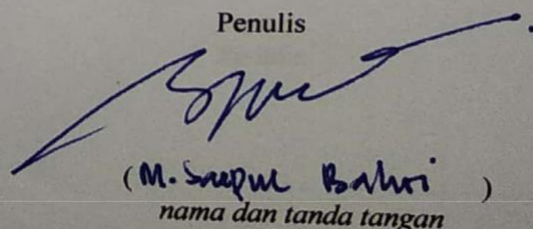 Penulis
(M. Saepul Bahri)
nama dan tanda tangan